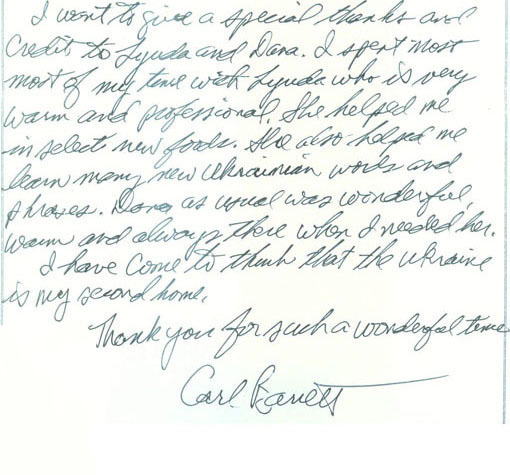 I want to give a special thanks and
Credit to Lynda and Dana. I spent most
most of my time with Lynda who is very
warm and professional. She helped me
in select new foods. She also helped me
learn many new Ukrainian words and
phrases. Dana as usual was wonderful,
warm and always there when I needed her.
I have come to think that the Ukraine
is my second home.
Thank you for such a wonderful time
Carl Barrett